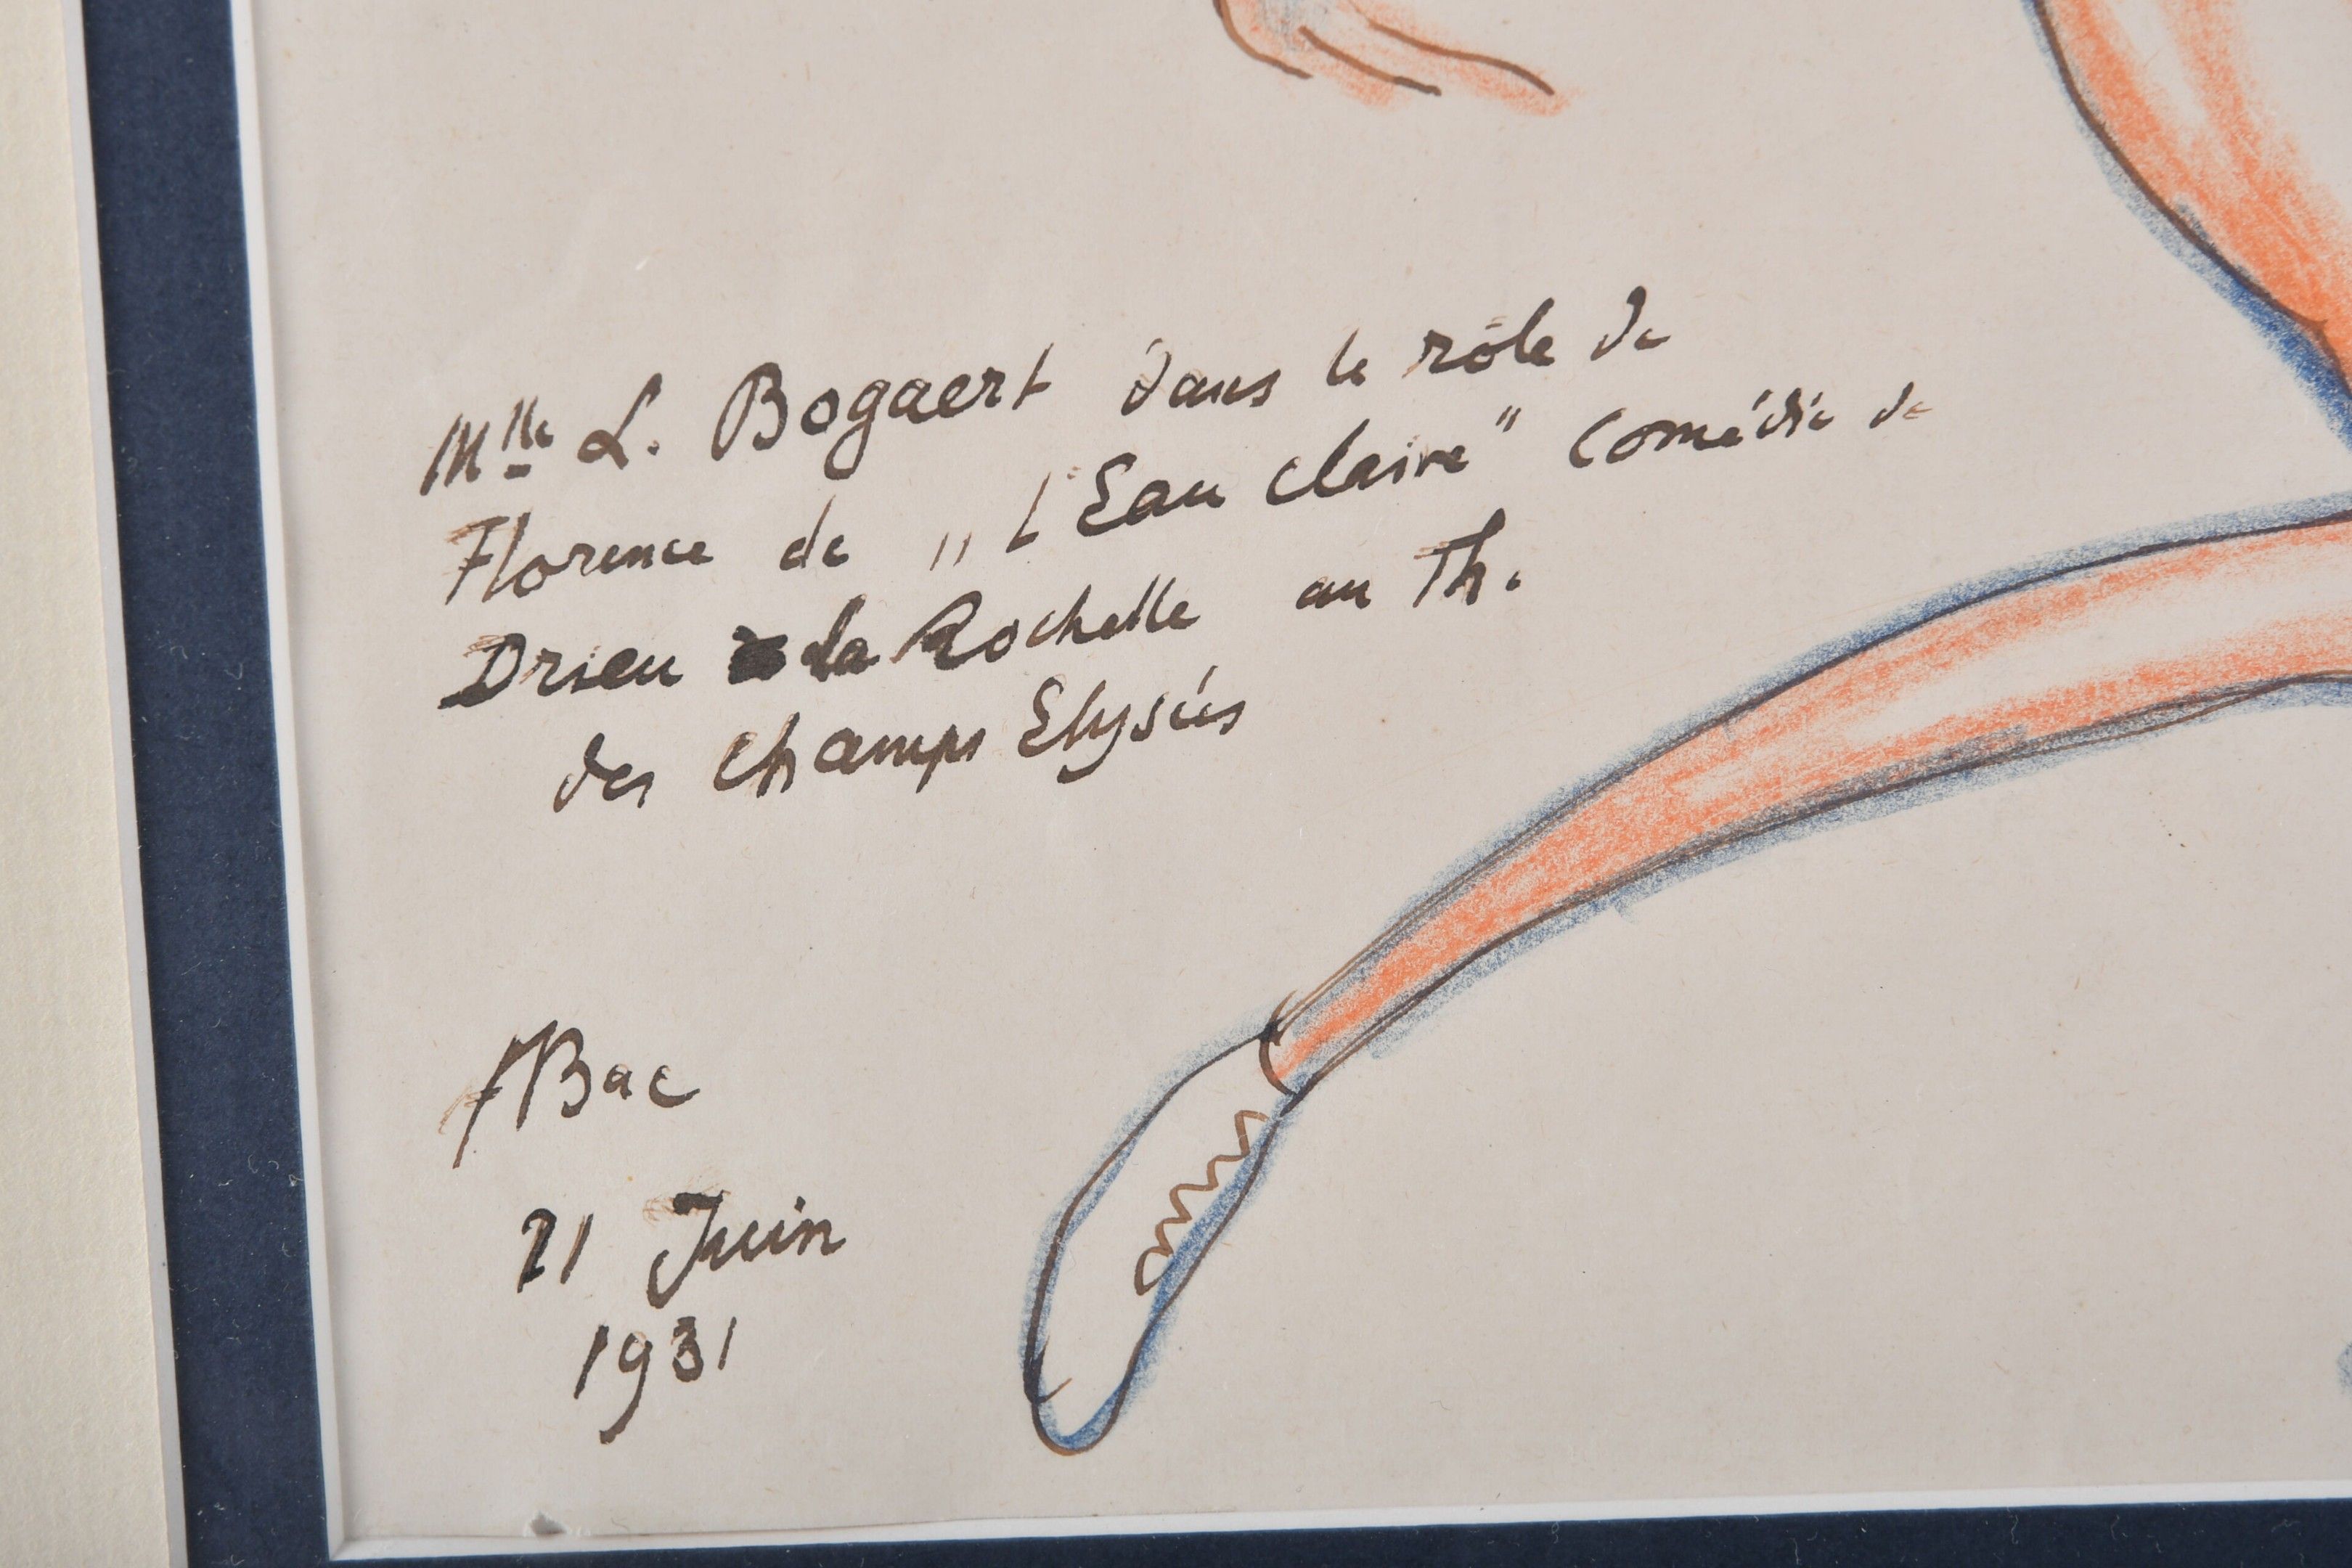 Mlle L. Bogaert dans le rôle de
Florence de „l'Eau claire" Comédie de
Drieu la Rochelle au Th.
des Champs Elysées
FBac
21 Juin
1931